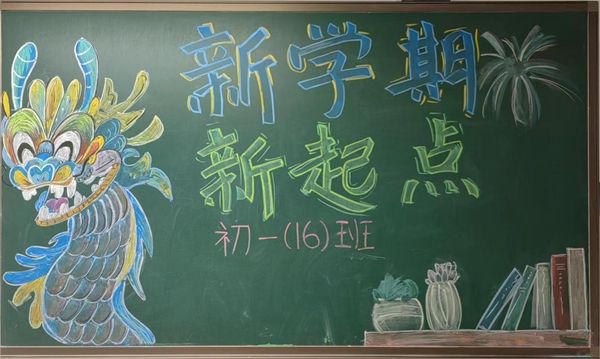 新学期
新起点
初一(16)班